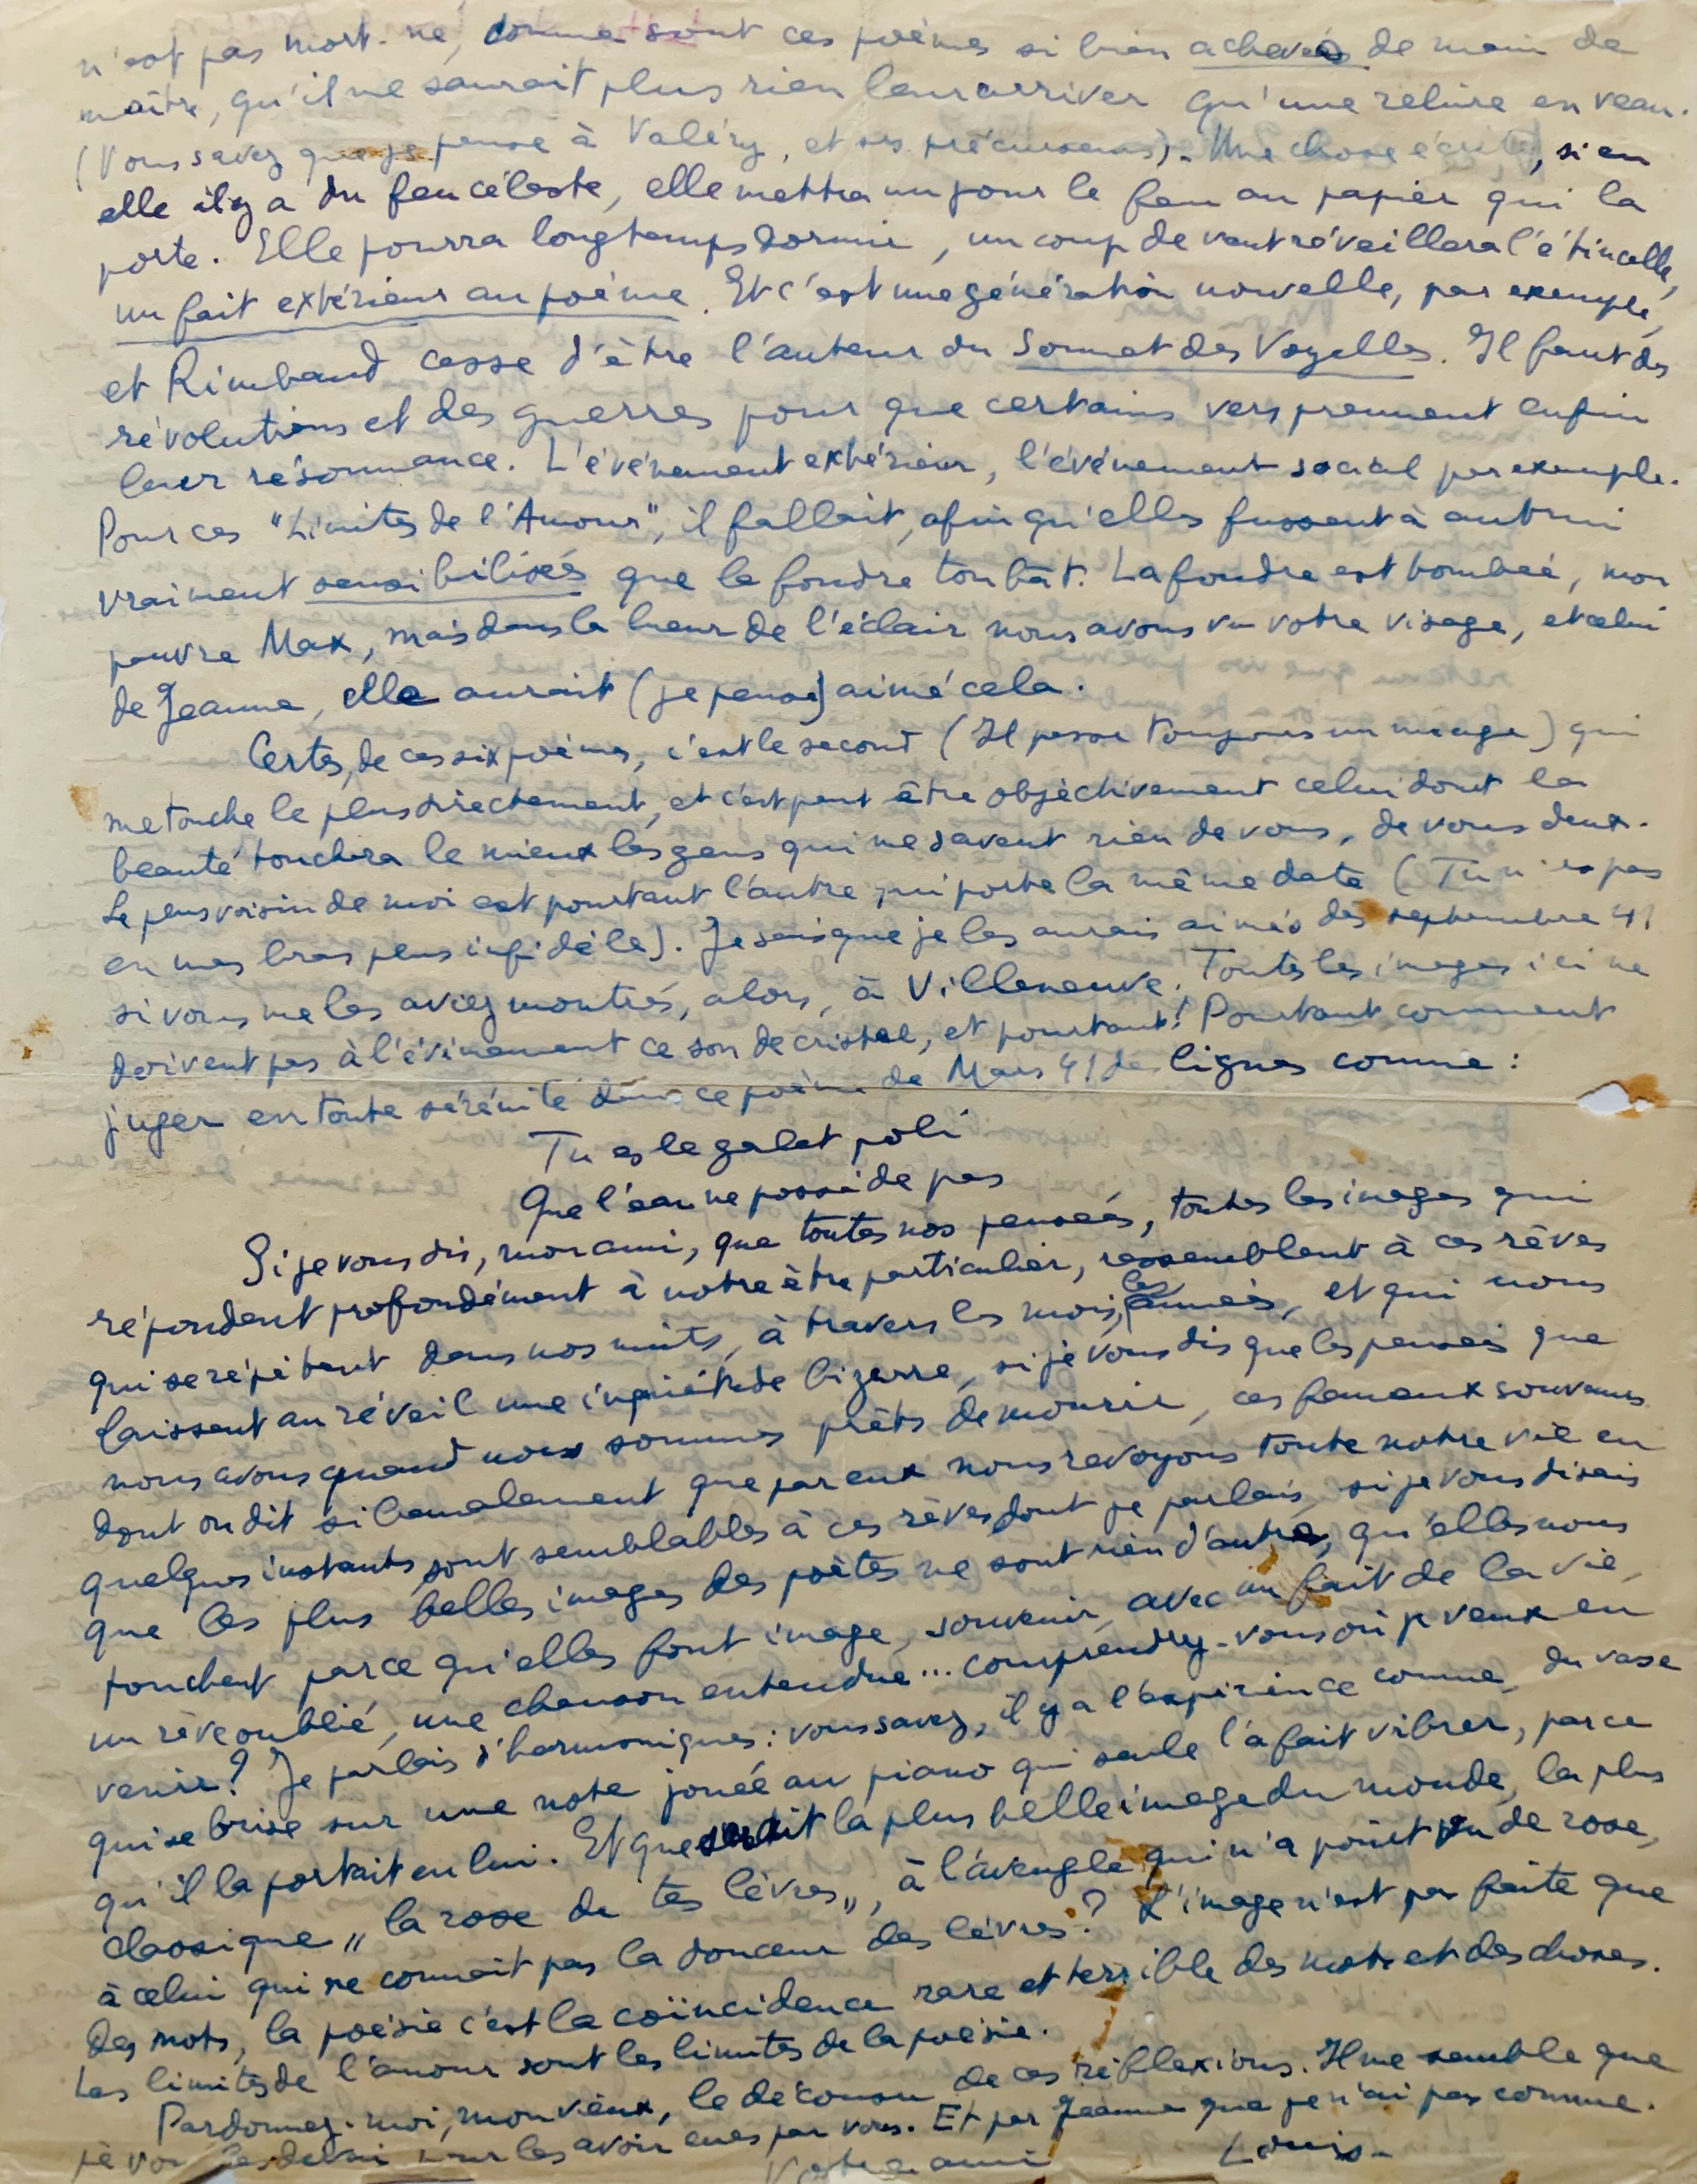 n'est pas mort-né, comme sont ces poèmes si bien achevés de main de
maître, qu'il ne saurait plus rien leur arriver qu'une reliure en veau.
(Vous savez que je pense à Valéry, et ses précurseurs). Une chose écrite, si en
elle il y a du feu céleste, elle mettra un jour le feu au papier qui la
porte. Elle pourra longtemps dormir, un coup de vent réveillera l'étincelle,
un fait extérieur au poème. Et c'est une génération nouvelle, par exemple,
et Rimbaud cesse d'être l'auteur du Sonnet des Voyelles. Il faut des
révolutions et des guerres pour que certains vers prennent enfin
leur résonnance. L'événement extérieur, l'événement social par exemple.
Pour ces "Limites de l'Amour", il fallait, afin qu'elles fussent à autrui
vraiment sensibilisés que la foudre tombât. La foudre est tombée, mon
pauvre Max, mais dans la lueur de l'éclair nous avons vu votre visage, et celui
de Jeanne, elle aurait (je pense) aimé cela.
Certes, de ces six poèmes, c'est le second (Il passe toujours un nuage) qui
me touche le plus directement, et c'est peut être objectivement celui dont la
beauté touchera le mieux les gens qui ne savent rien de vous, de vous deux.
Le plus voisin de moi est pourtant l'autre qui porte la même date (Tu n'es pas
en mes bras plus infidèle). Je sais que je les aurais aimés dès septembre 41
si vous me les aviez montrés, alors, à Villeneuve. Toutes les images ici ne
doivent pas à l'événement ce son de cristal, et pourtant! Pourtant comment
juger en toute sérénité dans ce poème de Mars 41 des lignes comme :
Tu es le galet poli
Que l'eau ne possède pas
Si je vous dis, mon ami, que toutes nos pensées, toutes les images qui
répondent profondément à notre être particulier, ressemblent à ces rêves
qui se répètent dans nos nuits, à travers les mois, les années, et qui nous
laissent au réveil une inquiétude bizarre, si je vous dis que les pensées que
nous avons quand nous sommes prêts de mourir, ces fameux souvenirs
dont on dit si banalement que par eux nous revoyons toute notre vie en
quelques instants, sont semblables à ces rêves dont je parlais, si je vous disais
que les plus belles images des poètes ne sont rien d'autre, qu'elles nous
touchent parce qu'elles font image, souvenir, avec un fait de la vie,
un rêve oublié, une chanson entendue... comprenez-vous où je veux en
venir? Je parlais d'harmoniques: vous savez, il y a l'expérience connue, du vase
qui se brise sur une note jouée au piano qui seule l'a fait vibrer, parce
qu'il la portait en lui. Et que serait la plus belle image du monde, la plus
classique „la rose de tes lèvres„, à l'aveugle qui n'a point vu de rose,
à celui qui ne connait pas la douceur des lèvres? L'image n'est pas faite que
des mots, la poésie c'est la coïncidence rare et terrible des mots et des choses.
Les limites de l'amour sont les limites de la poésie.
Pardonnez-moi, mon vieux, le décousu de ces réflexions. Il me semble que
je vous les devais pour les avoir eues par vous. Et par Jeanne que je n'ai pas connue.
Votre ami Louis-